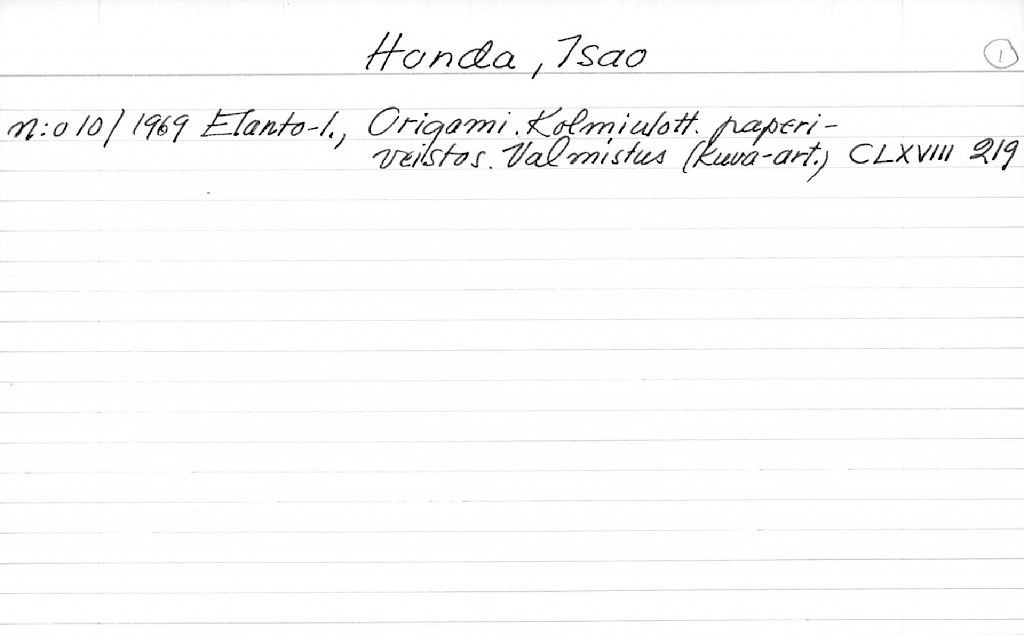 Honda, Isao
1
n:o 10/1969 Elanto-l., Origami. Kolmiulott. paperi-
veistos. Valmistus (kuva-art.) CLXVIII 219